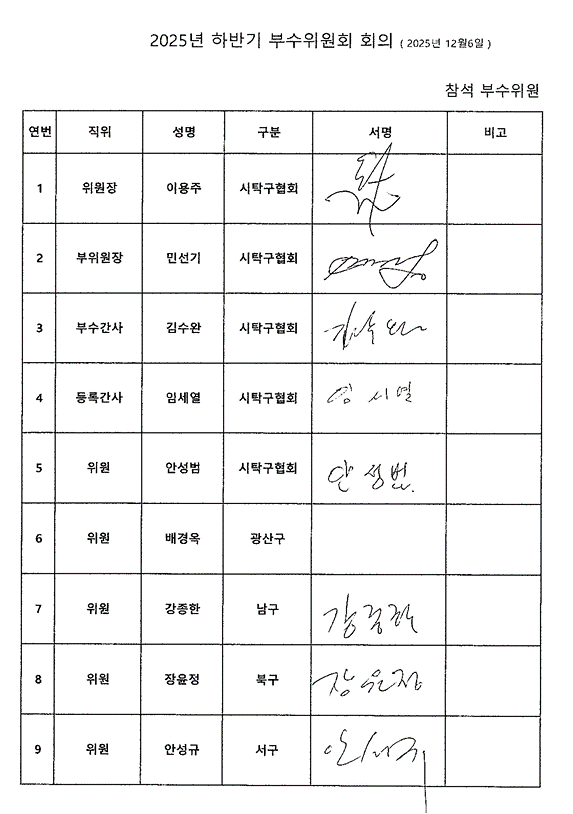 2025년 하반기 부수위원회 회의 ( 2025년 12월6일 )
참석 부수위원
연번 직위 성명 구분 서명 비고
1 위원장 이용주 시탁구협회
2 부위원장 민선기 시탁구협회
3 부수간사 김수완 시탁구협회 김수완
4 등록간사 임세열 시탁구협회 임세열
5 위원 안성범 시탁구협회 안성범
6 위원 배경옥 광산구
7 위원 강종한 남구 강종한
8 위원 장윤정 북구 장윤정
9 위원 안성규 서구 안성규